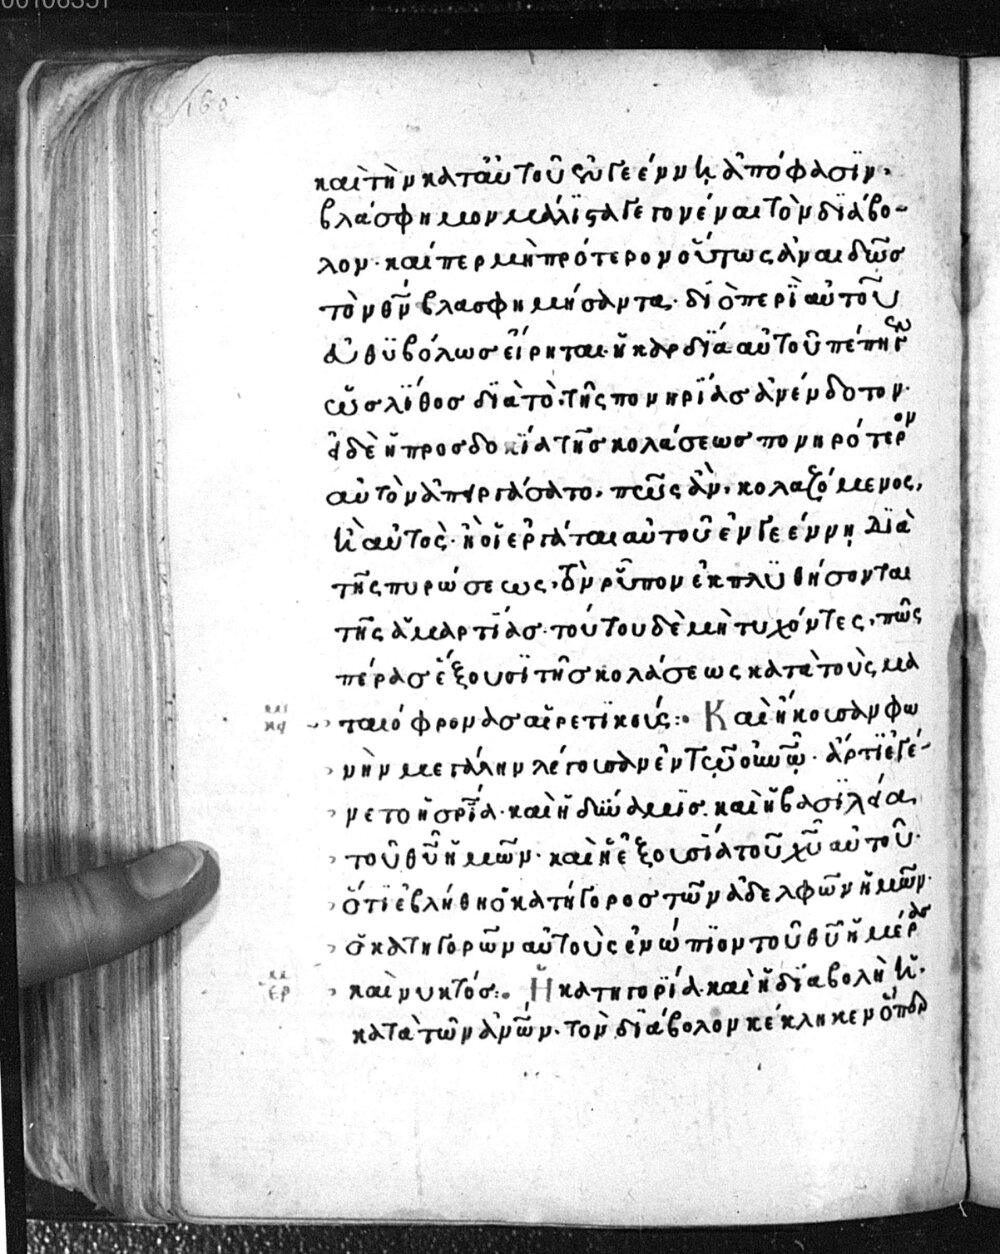 00108351
160
καὶ τὴν κατ' αὐτοῦ ἐν γεέννῃ ἀπόφασϊν·
βλάσφημον μάλϊστα γεγονέναι τὸν δϊάβο-
λον· καίπερ μὴ πρότερον οὕτως ἀναιδῶσ
τὸν θν βλασφημήσαντα· δϊὸ περὶ αὐτοῦ
εἴρηται· ἡ καρδϊα αὐτοῦ πέπηγεν
ὡσ λΐθοσ δϊὰ τὸ τῆς πονηρΐασ ἀνένδοτον·
εἰ δὲ ἡ προσδοκΐα τῆσ κολάσεωσ πονηρότερον
αὐτὸν ἀπηργάσατο, πῶς ἂν, κολαζόμενος,
ἢ αὐτὸς· ἢ οἱ ἐργάται αὐτοῦ ἐν γεέννῃ δϊὰ
τῆς πυρώσεως, τὸν ῥύπον ἐκπλυθήσονται
τῆς ἁμαρτΐασ· τούτου δὲ μὴ τυχόντες, πῶς
πέρασ ἕξουσϊ τῆσ κολάσεως κατὰ τοὺς μα
ταιόφρονασ αἱρετϊκούς:· Καὶ ἤκουσα φω
νὴν μεγάλην λέγουσαν ἐν τῷ οὐνῷ· ἄρτϊ ἐγέ-
νετο ἡ σρΐα· καὶ ἡ δύναμϊσ· καὶ ἡ βασϊλεία,
τοῦ θῦ ἡμῶν· καὶ ἡ ἐξουσΐα τοῦ χῦ αὐτοῦ·
ὅτϊ ἐβλήθη ὁ κατήγοροσ τῶν ἀδελφῶν ἡμῶν·
ὁ κατηγορῶν αὐτοὺς ἐνώπϊον τοῦ θῦ ἡμέρασ
καὶ νυκτόσ:· Ἡ κατηγορΐα· καὶ ἡ δϊαβολὴ ἡ·
κατὰ τῶν ἀνῶν· τὸν δϊάβολον κέκληκεν